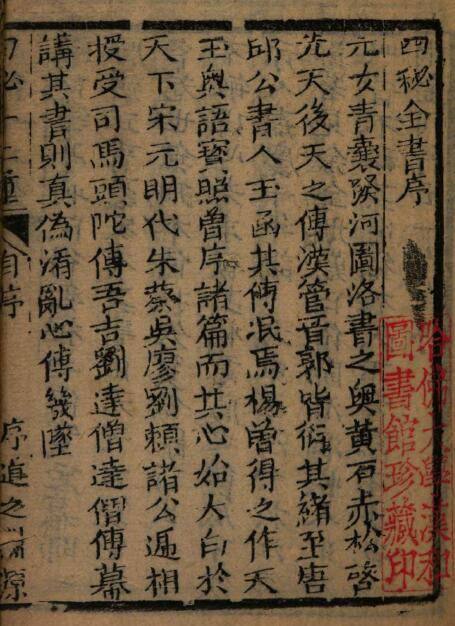 四秘全書序
元女青囊發河圖洛書之奧黃石赤松啓
先天後天之傳漢管晋郭皆衍其緒至唐
邱公書入玉函其傳泯焉楊曾得之作天
玉奥語寳照曾序諸篇而其心始大白於
天下宋元明代朱蔡吳廖劉賴諸公遞相
授受司馬頭陀傳吾吉劉達僧達僧傳幕
講其書則真偽淆亂心傳幾墜
四秘十二種
自序
序道之淵源
哈佛大學漢和
圖書館珍藏印